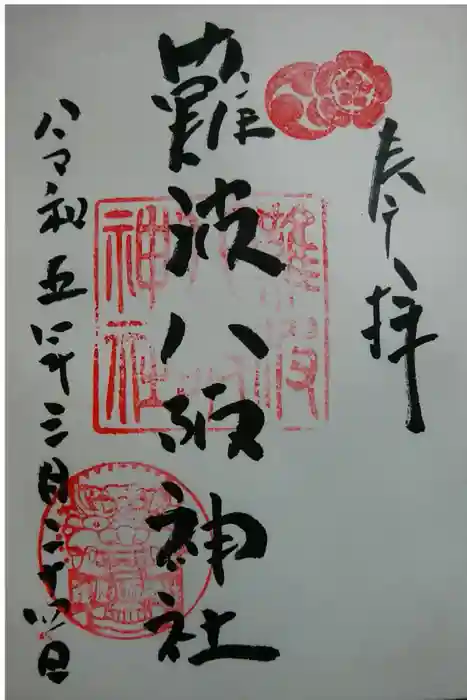 奉拝
難波八阪神社
難波
八阪
神社
令和五年三月二十四日